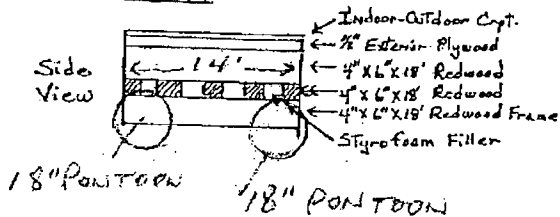 Indoor-Outdoor Crpt.
5/8" Exterior Plywood
Side View
14'
4" X 6" X 18' Redwood
4" X 6" X 18' Redwood
4" X 6" X 18' Redwood Frame
Styrofoam Filler
18" PONTOON
18" PONTOON